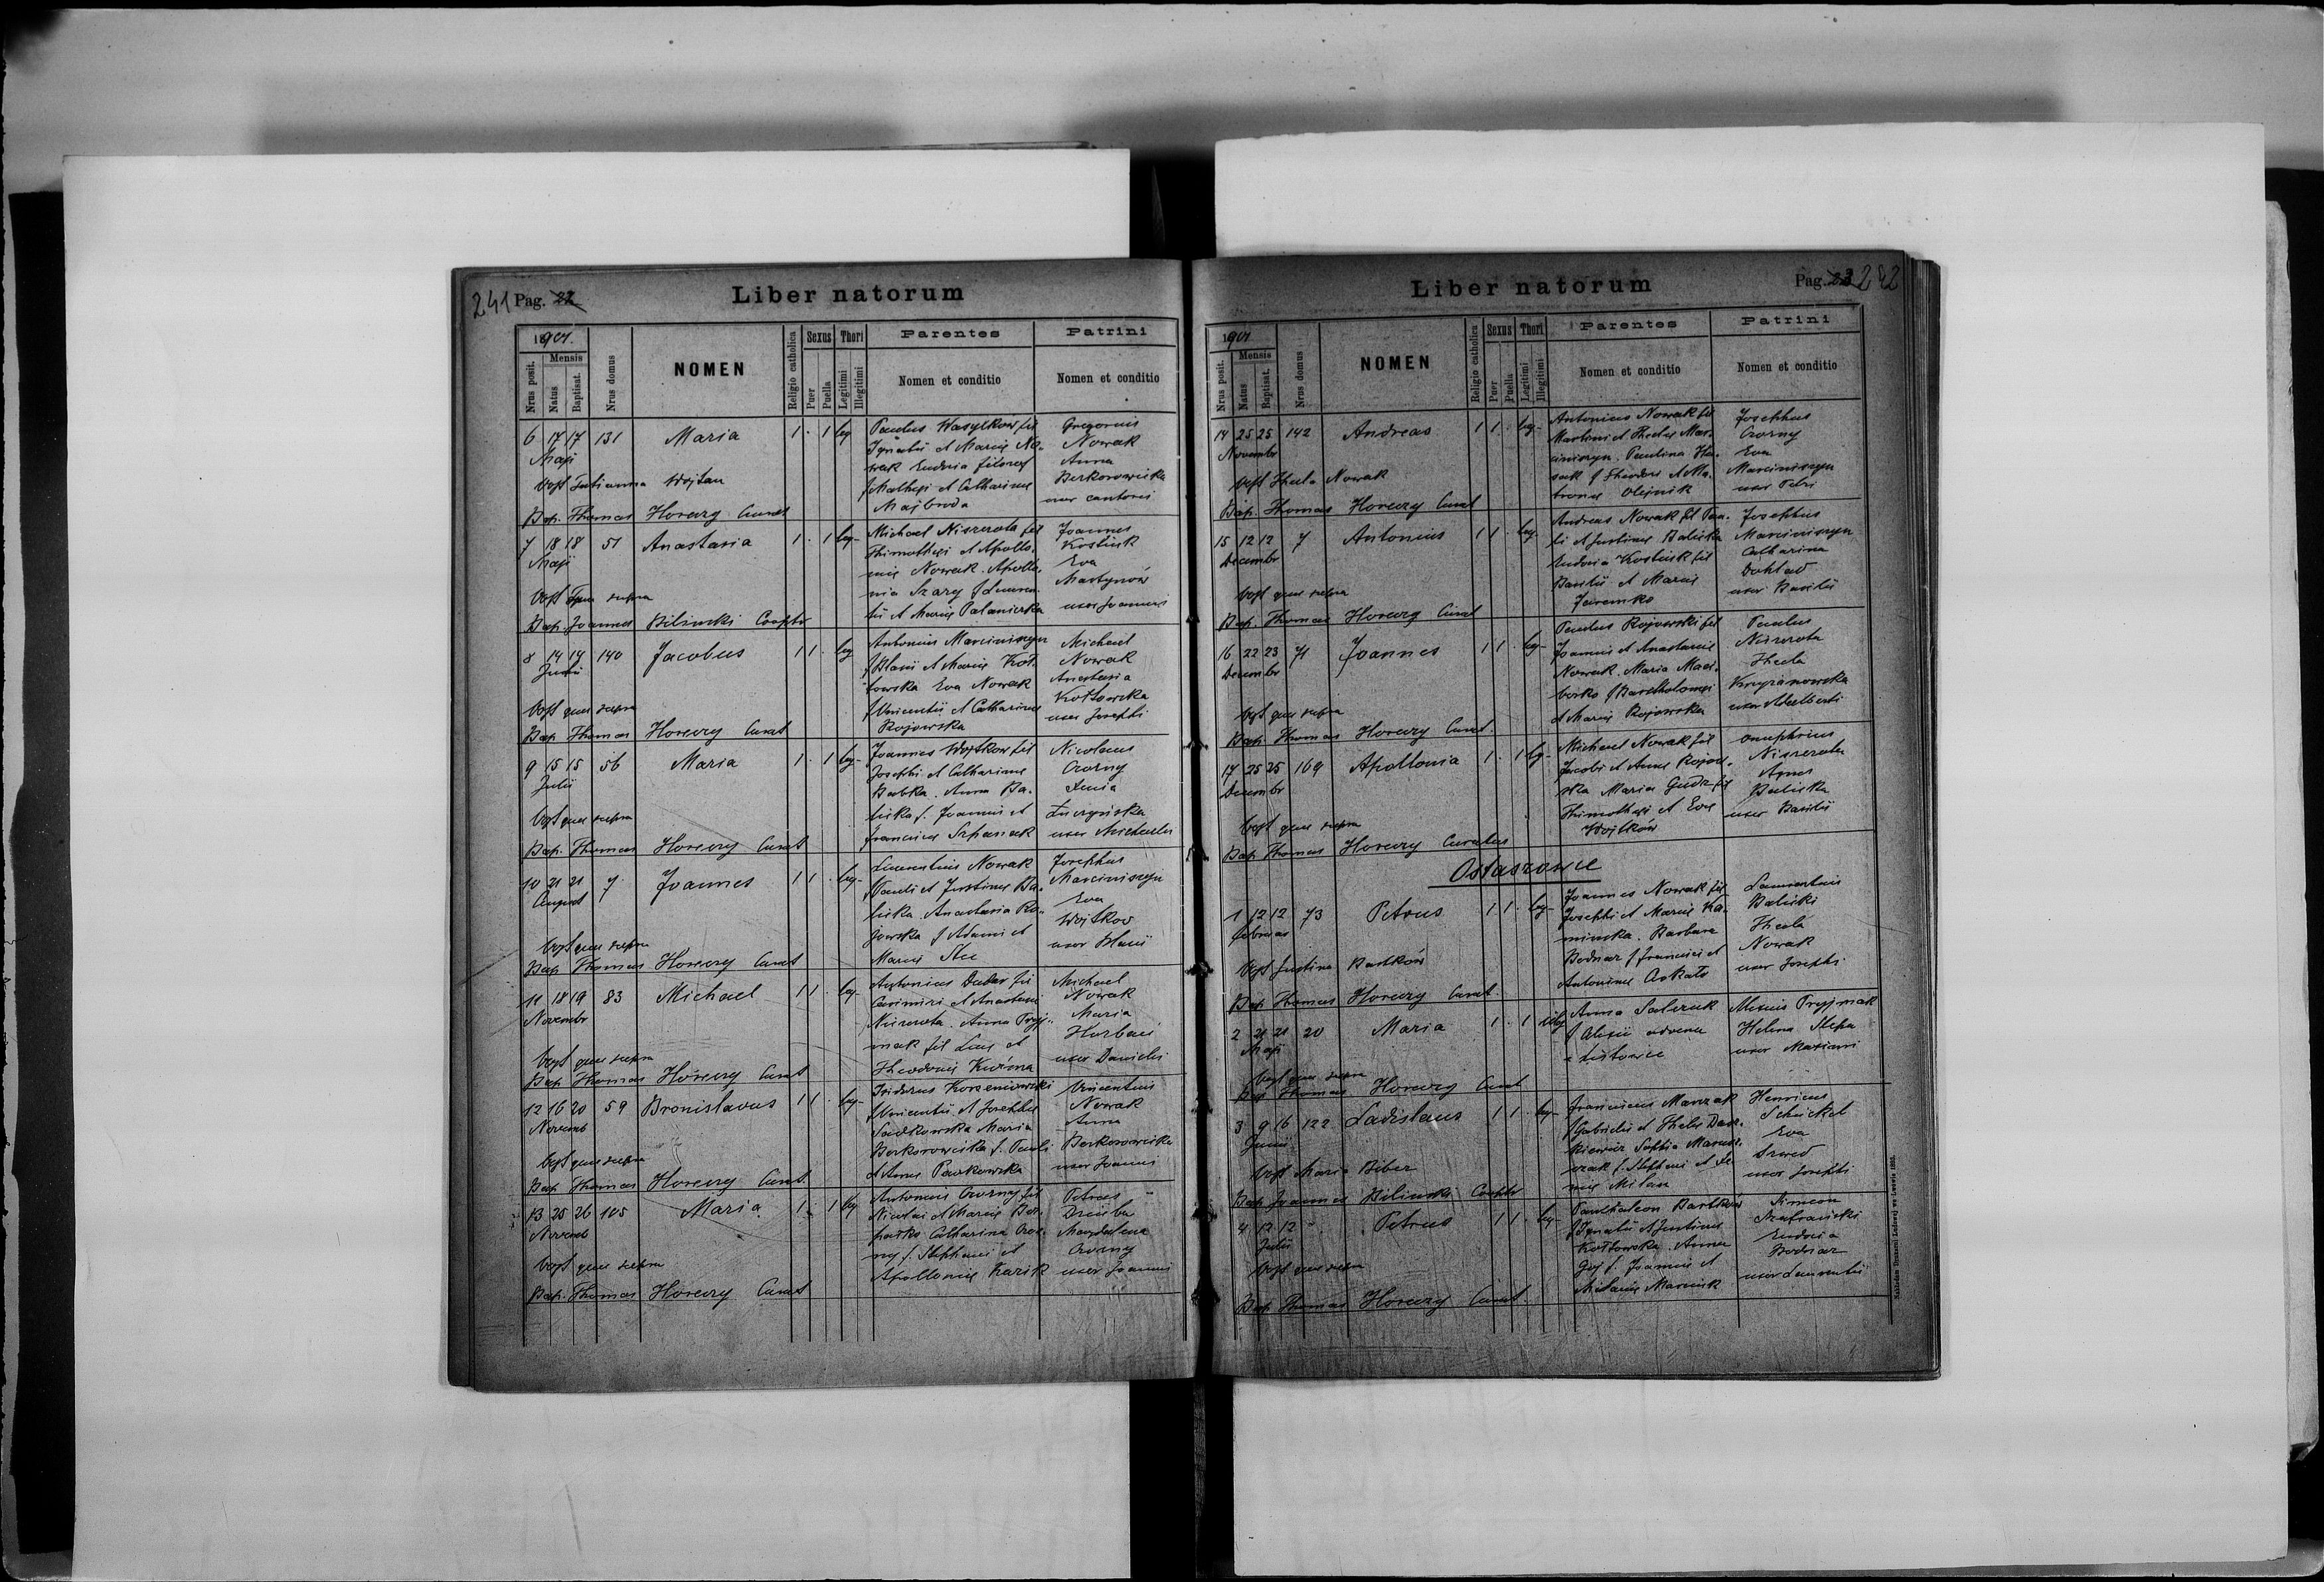 241 Pag. 22
Liber natorum
1901.
Nrus posit.
Mensis
Natus
Baptisat.
Nrus domus
NOMEN
Religio catholica
Sexus
Puer
Puella
Thori
Legitimi
Illegitimi
Parentes
Nomen et conditio
Patrini
Nomen et conditio
6 17 17 131 Maria 1 . 1 leg
Maji
Paulus Wasylkow fil
Ignatii et Mariae No-
wak Eudoxia fil
f Mathei et Catharinae
Gregorius
Nowak
Anna
Berkorowicka
uxor cantoris
Obst Tatianna Wojtan
Bap. Thomas Horeczy Curat
7 18 18 51 Anastasia 1 . 1 leg-
Maji
Michael Niszczota fil
Thimothei et Apollo-
niae Nowak. Apollo-
nia Szary f Lauren-
tii et Mariae Palaniczka
Joannes
Kostiuk
Eva
Martynów
uxor Joannis
Obst supra
Bap. Joannes Bilinski Cooptr
8 14 14 140 Jacobus 1 1 . leg
Antonius Marciniszyn
f Blasii et Mariae Koł-
towska Eva Nowak
f Vincentii et Catharinae
Rojowska
Michael
Nowak
Anastasia
Kołtowska
uxor Josephi
Obst quae supra
Bap. Thomas Horeczy Curat
9 15 15 56 Maria 1 . 1 leg-
Julii
Joannes Wojtkow fil
Josephi et Catharinae
Babka. Anna Ba-
licka f. Joannis et
Franciscae Szpanak
Nicolaus
Czorny
Xenia
Łuczyńska
uxor Michaelis
Obst quae supra
Bap. Thomas Horeczy Curat
10 21 21 7 Joannes 1 1 . leg-
August
Laurentius Nowak
f Pauli et Justinae Ba-
licka. Anastasia Ro-
jowska f Adami et
Mariae Stec
Josephus
Marciniszyn
Eva
Wojtkow
uxor Blasii
Obst quae supra
Bap Thomas Horeczy Curat
11 18 19 83 Michael 1 1 . leg
Novembr
Antonius Dudar fil
Casimiri et Anastasiae
Niszczota. Anna Pryj-
mak fil Lucae et
Theodorae Kuźma
Michael
Nowak
Maria
Horbaći
uxor Danielis
Obst quae supra
Bap Thomas Horeczy Curat
12 16 20 59 Bronislavus 1 1 . leg-
Novemb
Isidorus Korzeniowski
f Vincentii et Josephae
Sadkowska Maria
Berkorowicka f. Pauli
et Annae Pawkowska
Vincentius
Nowak
Anna
Berkorowicka
uxor Joannis
Obst quae supra
Bap Thomas Horeczy Curat
13 25 26 105 Maria 1 . 1 leg
Novemb
Antonius Czorny fil
Nicolai et Mariae
Catharina Czor-
ny f. Stephani et
Apolloniae Kazik
Petrus
Dziuba
Magdalena
Czorny
uxor Joannis
Obst quae supra
Bap. Thomas Horeczy Curat
Liber natorum
Pag. 23 242
1901
Nrus posit.
Mensis
Natus
Baptisat.
Nrus domus
NOMEN
Religio catholica
Sexus
Puer
Puella
Thori
Legitimi
Illegitimi
Parentes
Nomen et conditio
Patrini
Nomen et conditio
14 25 25 142 Andreas 1 1 . leg-
Novembr
Antonius Nowak fil
Martini et Theclae Mar-
ciniszyn. Paulina
f Theodori et Ma-
tronae Olejnik
Josephus
Czorny
Eva
Marciniszyn
uxor Petri
Obst Thecla Nowak
Bap. Thomas Horeczy Curat
15 12 12 7 Antonius 1 1 . leg-
Decembr
Andreas Nowak fil Pau-
li et Justinae Balicka
Eudoxia Kostiuk fil
Basilii et Mariae
Jaremko
Josephus
Marciniszyn
Catharina
uxor Basilii
Obst quae supra
Bap. Thomas Horeczy Curat
16 22 23 71 Joannes 1 1 . leg-
Decembr
Paulus Rojowski fil
Joannis et Anastasiae
Nowak. Maria Maci-
borko f Bartholomei
et Mariae Rojowska
Paulus
Niszczota
Thecla
Krzyżanowska
uxor Adalberti
Obst quae supra
Bap. Thomas Horeczy Curat.
17 25 25 169 Apollonia 1 . 1 leg-
Decembr
Michael Nowak fil
Jacobi et Annae Rojow-
ska Maria Gudz fil
Thimothei et Evae
Wojtków
Onuphrius
Niszczota
Agnes
Balicka
uxor Basilii
Obst quae supra
Bap Thomas Horeczy Curatus
Ostaszowce
1 12 12 73 Petrus 1 1 . leg-
Februar
Joannes Nowak fil
Josephi et Mariae Ka-
minska. Barbara
Bodnar f Francisci et
Antoninae
Laurentius
Balicki
Thecla
Nowak
uxor Josephi
Obst Justina Bartków
Bap Thomas Horeczy Curat.
2 21 21 20 Maria 1 . 1 illeg
Maji
Anna
f Alexii advena
Alexius Pryjmak
Helena Stepa
uxor Mariani
Obst quae supra
Bap Thomas Horeczy Curat
3 9 16 122 Ladislaus 1 1 . leg-
Junii
Franciscus Manzak
f Gabrielis et Theclae Dasz-
kiewicz Sophia
f. Stephani et Xe-
niae Milan
Henricus
Schnickel
Eva
Szwed
uxor Josephi
Obst Maria Biber
Bap Joannes Bilinski Cooptr
4 12 12 " Petrus 1 1 . leg-
Julii
Panthaleon Bartków
f Ignatii et Justinae
Kołtowska. Anna
Gój f. Joannis et
Melaniae Marciuk
Simeon
Szafrański
Eudoxia
Bodnar
uxor Laurentii
Obst quae supra
Bap Thomas Horeczy Curat.
Nakładem Drukarni Ludowej we Lwowie